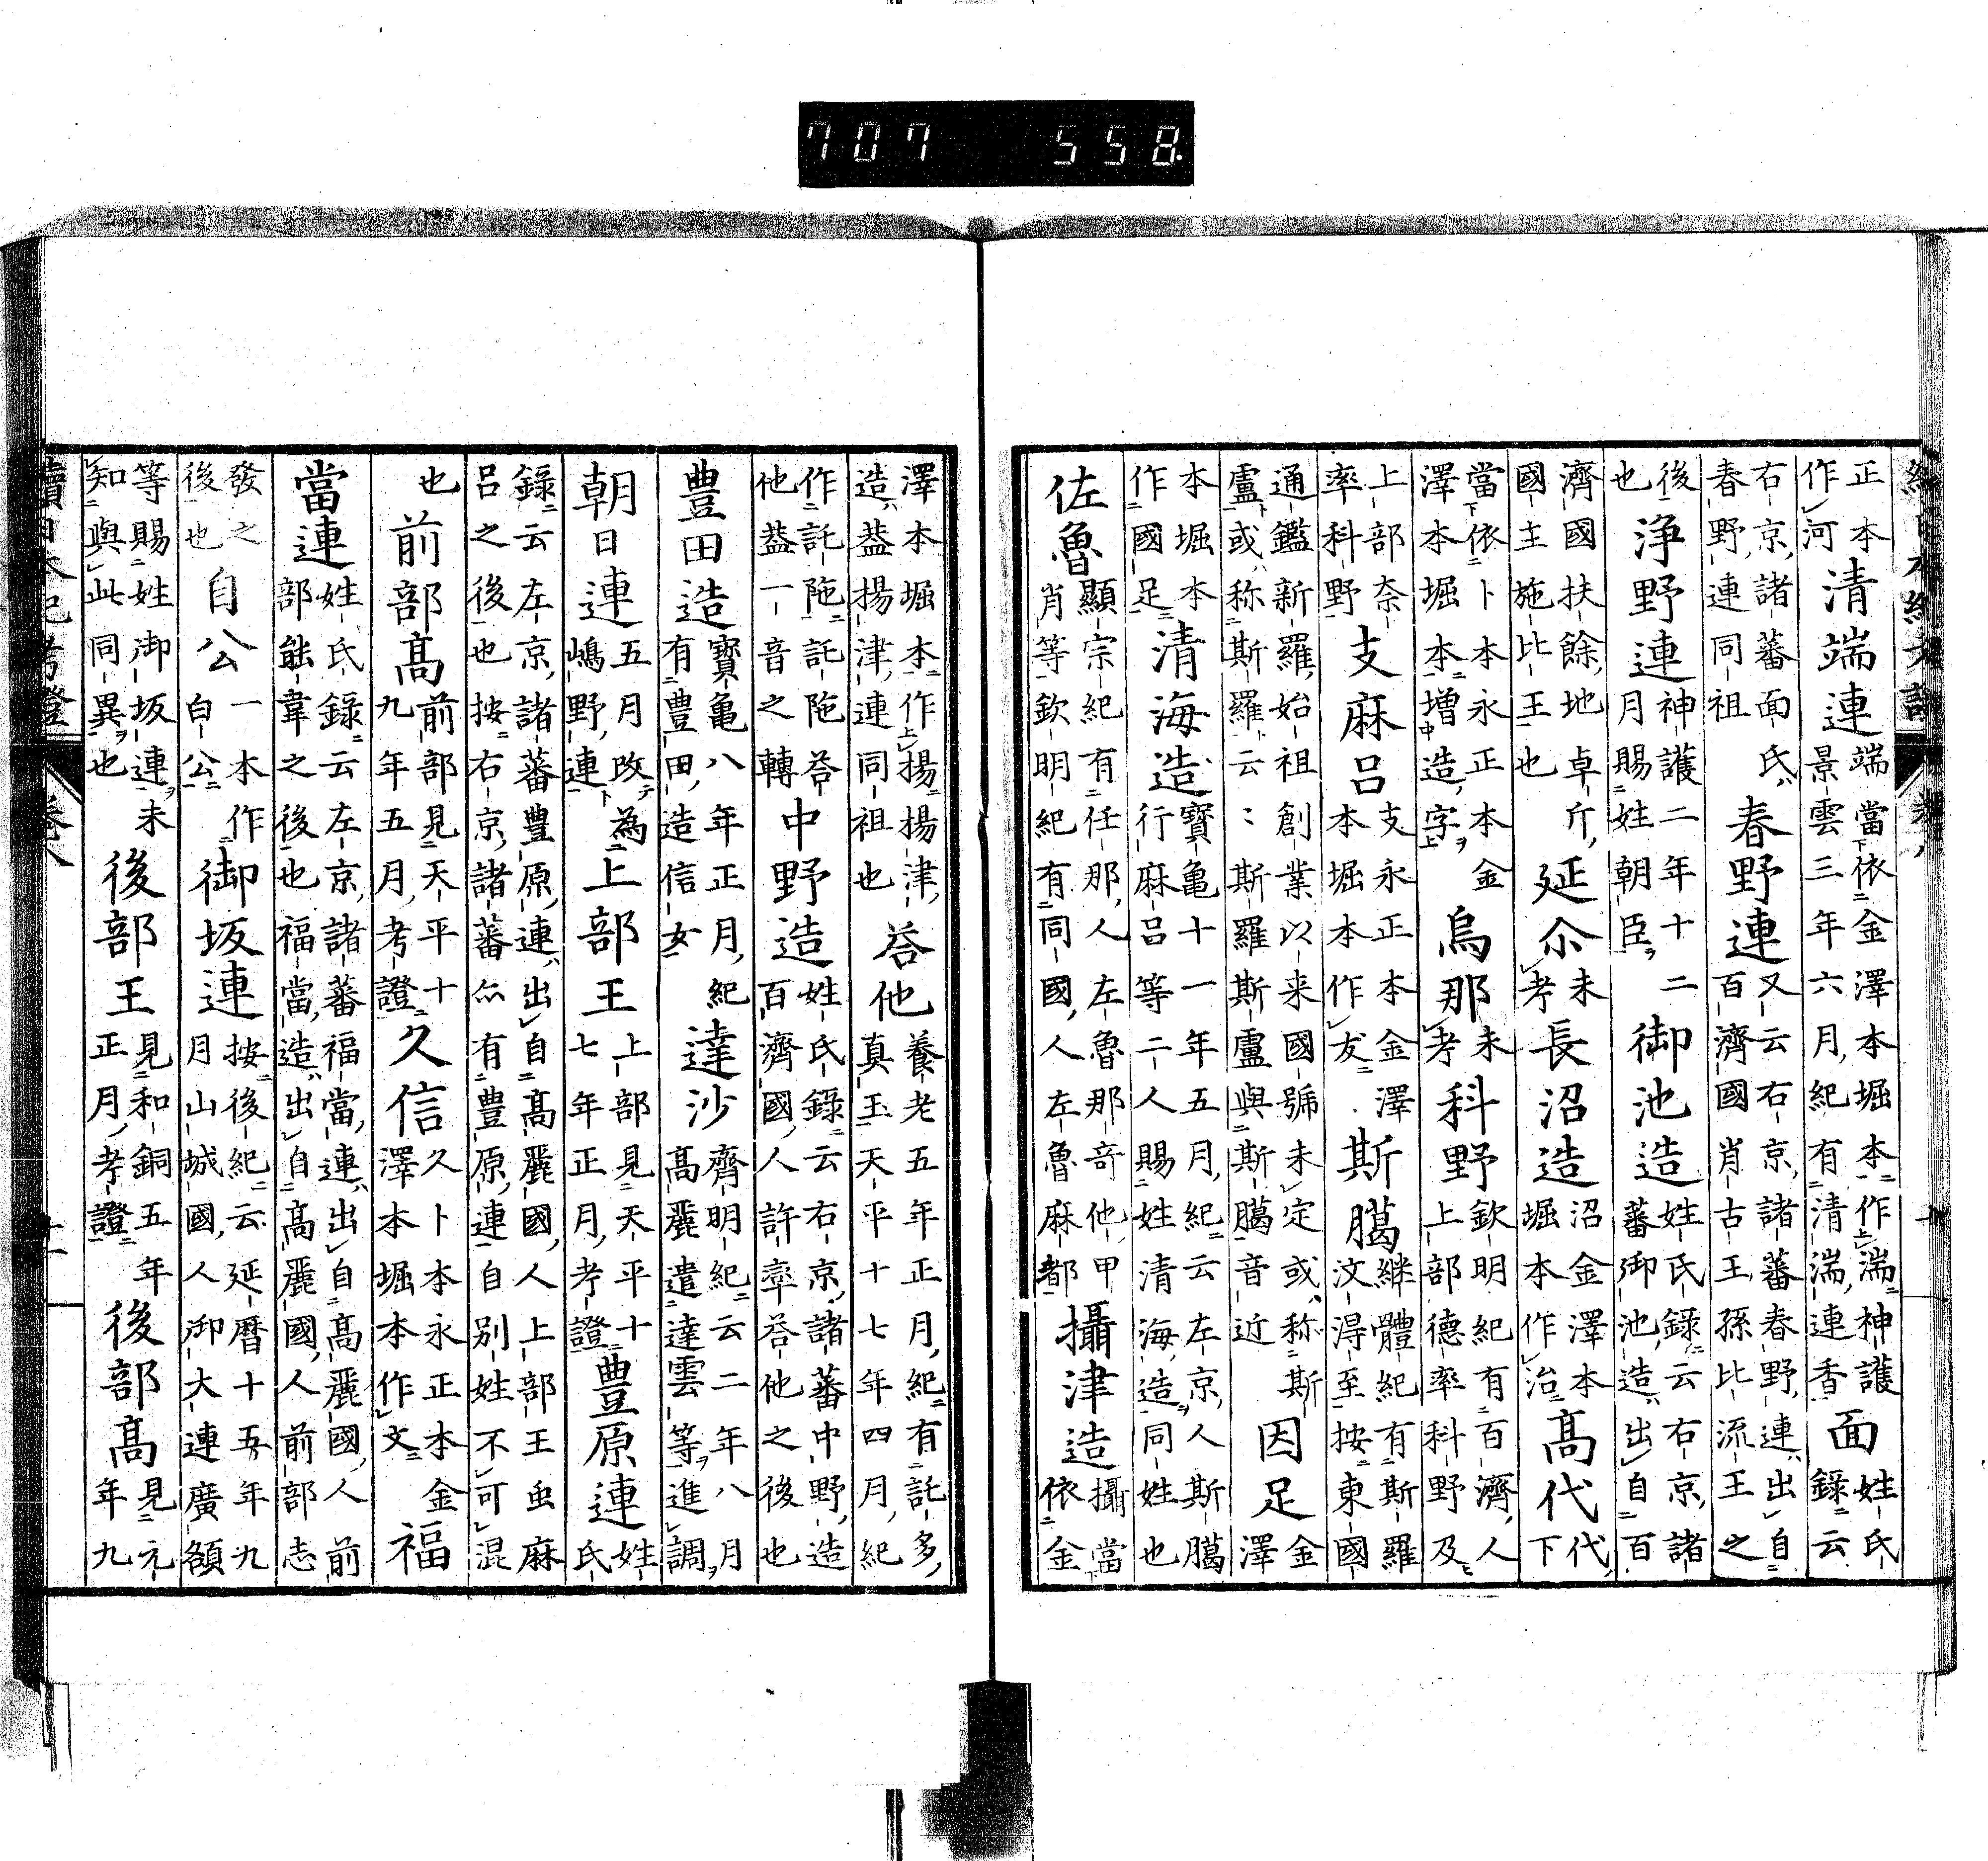 707 558
正本
作河
清端連
端當依金澤本堀本作湍神護
景雲三年六月紀有清湍連香
面
姓氏
錄云
右京諸蕃面氏
春野連同祖
春野連
又云右京諸蕃春野連出自
百濟國肖古王孫比流王之
後
也
浄野連
神護二年十二
月賜姓朝臣
御池造
姓氏錄云右京諸
蕃御池造出自百
濟國扶餘地卓斤
國主施比王也
延尒
未
考
長沼造
沼金澤本
堀本作治
高代
代
下
當依卜本永正本金
澤本堀本増造字
烏那
未
考
科野
欽明紀有百濟人
上部德率科野及
上部奈
率科野
支麻呂
支永正本金澤
本堀本作友
斯臈
継體紀有斯羅
汶淂至按東國
通鑑新羅始祖創業以来國號未定或称斯
盧或称斯羅云〻斯羅斯盧與斯臈音近
因足
金
澤
本堀本
作國足
清海造
寶亀十一年五月紀云左京人斯臈
行麻呂等二人賜姓清海造同姓也
佐魯
顯宗紀有任那人左魯那奇他甲
肖等欽明紀有同國人左魯麻都
攝津造
攝當
依金
澤本堀本作揚揚津
造葢揚津連同祖也
荅他
養老五年正月紀有託多
真玉天平十七年四月紀
作託陁託陁荅
他葢一音之轉
中野造
姓氏錄云右京諸蕃中野造
百濟國人許率荅他之後也
豊田造
寶亀八年正月紀
有豊田造信女
達沙
齊明紀云二年八月
高麗遣達雲等進調
朝日連
五月改為
嶋野連
上部王
上部見天平十
七年正月考證
豊原連
姓
氏
錄云左京諸蕃豊原連出自高麗國人上部王虫麻
呂之後也按右京諸蕃亦有豊原連自別姓不可混
也
前部高
前部見天平十
九年五月考證
久信
久卜本永正本金
澤本堀本作文
福
當連
姓氏錄云左京諸蕃福當連出自高麗國人前
部能韋之後也福當造出自高麗國人前部志
發之
後也
自公
一本作
白公
御坂連
按後紀云延暦十五年九
月山城國人御大連廣額
等賜姓御坂連未
知與此同異也
後部王
見和銅五年
正月考證
後部高
見元
年九
續日本紀考證 卷八 十二